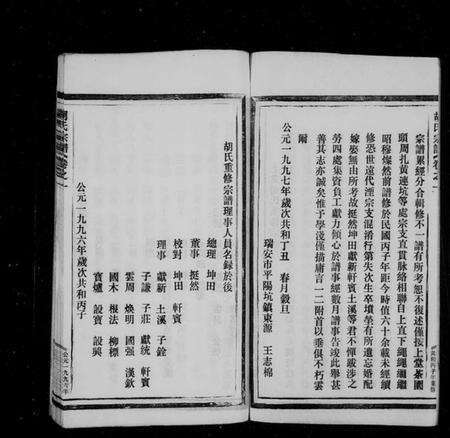 胡氏宗譜卷之一
宗譜累經分合輯修不一譜有所考恕不復述僅按上棠茶園
頭周扎黃連坑等處宗支直貫脉絡相聯自上直下繩繩繼繼
昭穆燦然前譜修於民國丙子年距今時值六十余載未經續
修恐世遠代湮宗支混淆行第失次生卒墳塋有所遺忘婚配
嫁娶無由所考故挺然坤田獻新軒賓土溪等君不憚跋涉之
勞四處集資負工獻力傾心於譜事經數月譜事告竣此舉甚
善其志亦誠矣惟予學淺僅撰庸言一二附首以垂俱不朽雲
附
公元一九九七年歲次共和丁丑 春月穀旦
瑞安市平陽坑鎮東源 王志棉
胡氏重修宗譜理事人員名錄於後
總理 坤田
董事 挺然
校對 坤田 軒賓
理事 獻新 土溪 子銓
子謙 子莊 獻統 軒賓
雲周 煥明 國强 漢欽
國木 根法 柳標
寶爐 設寶 設興
公元一九九六年歲次共和丙子
胡氏宗譜卷之一